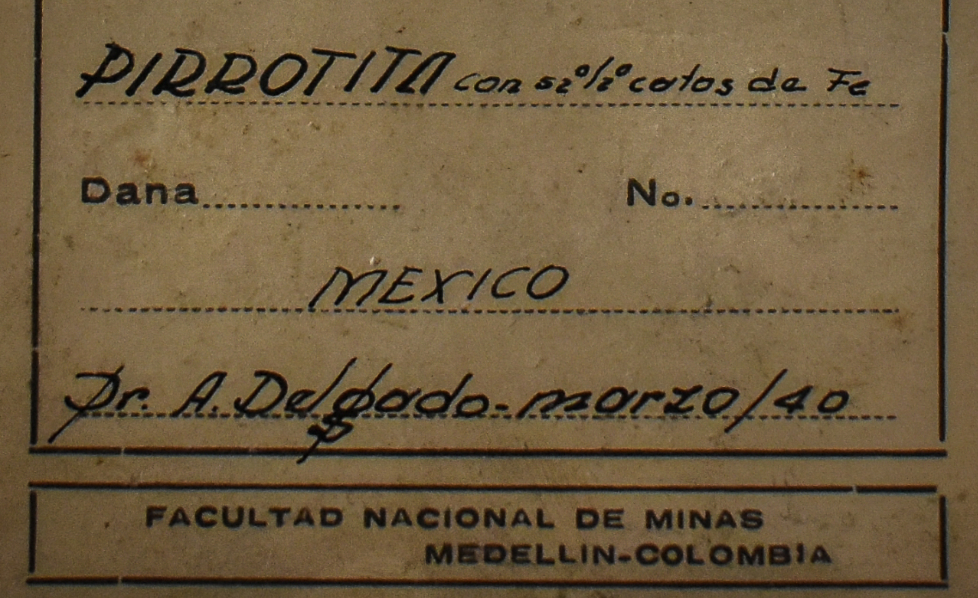 PIRROTITA con silicatos de Fe
Dana No.
MEXICO
Dr. A. Delgado - marzo/40
FACULTAD NACIONAL DE MINAS
MEDELLIN-COLOMBIA